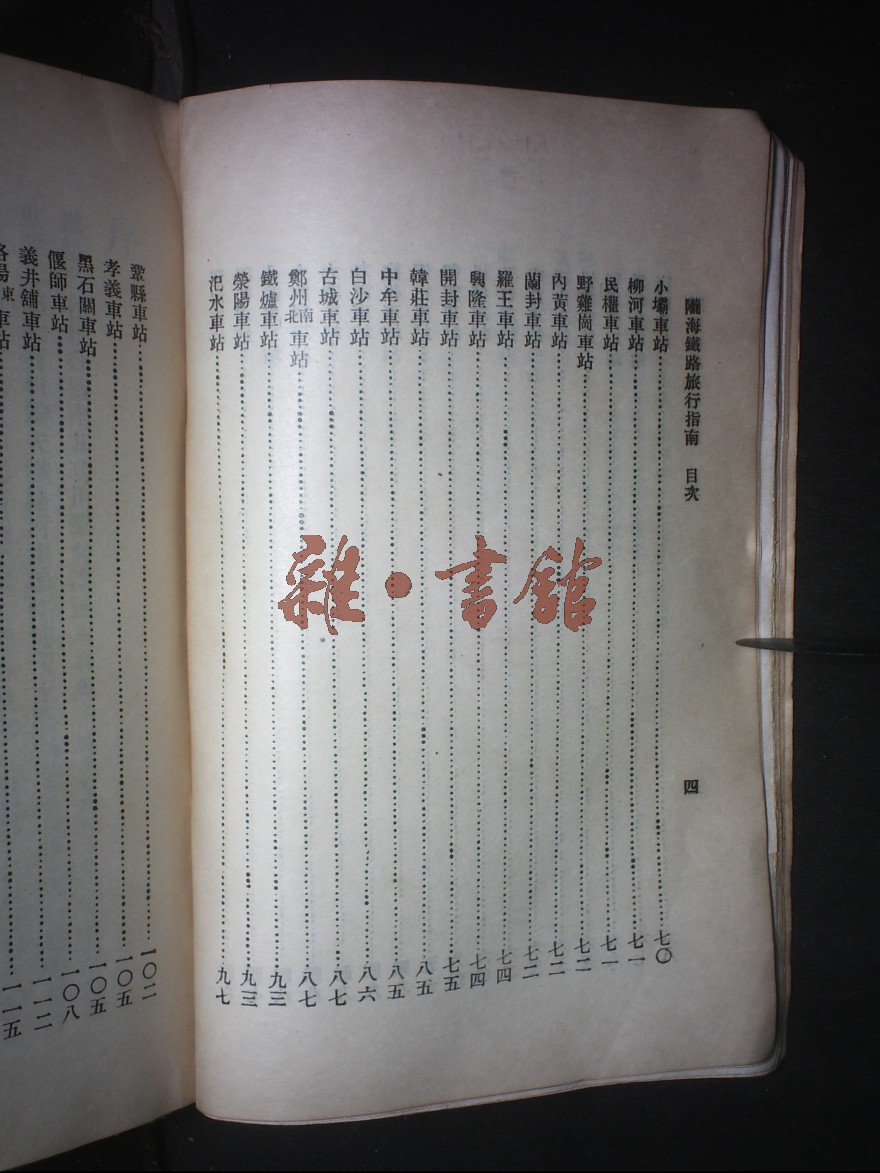 隴海鐵路旅行指南 目次 四
小壩車站 七〇
柳河車站 七一
民權車站 七一
野雞崗車站 七二
內黃車站 七二
蘭封車站 七二
羅王車站 七四
興隆車站 七四
開封車站 七五
韓莊車站 八五
中牟車站 八五
白沙車站 八六
古城車站 八七
鄭州南北車站 八七
鐵爐車站 九三
滎陽車站 九三
汜水車站 九七
鞏縣車站 一〇二
孝義車站 一〇五
黑石關車站 一〇五
偃師車站 一〇八
義井舖車站 一一二
洛陽東車站 一一五
雜·書館